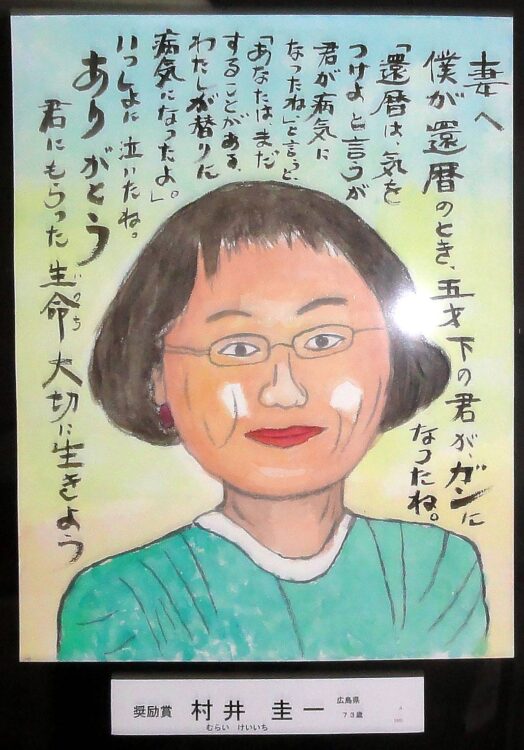 妻へ
僕が還暦のとき、五才下の君が、ガンに
なったね。
「還暦は、気を
つけよと言うが
君が病気に
なったね」と言うと、
「あなたはまだ
することがある、
わたしが替りに
病気になったよ。」
いっしょに泣いたね。
ありがとう
君にもらった生命大切に生きよう
いのち
奨励賞 村井 圭一 広島県
むらい けいいち 73歳